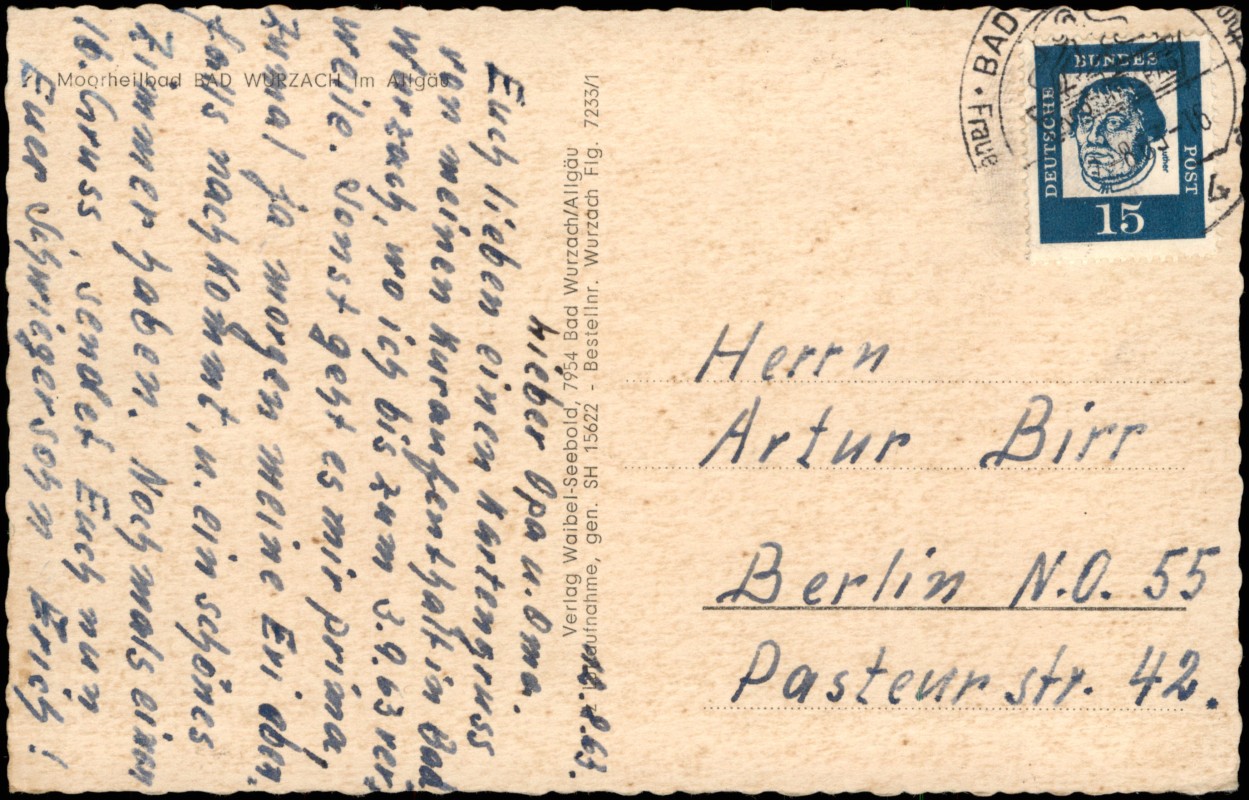 Moorheilbad BAD WURZACH im Allgäu
Verlag Waibel-Seebold, 7954 Bad Wurzach/Allgäu
aufnahme, gen. SH 15622 - Bestellnr. Wurzach Flg. 7233/1
8.63.
Lieber Opa u. Oma.
Euch lieben einen Kartengruss
von meinen Kuraufenthalt in Bad
Wurzach, wo ich bis zum 3.9.63 ver,
weile. Sonst geht es mir prima
zumal ja morgen meine Evi
falls nachkommt, u. ein schönes
Zimmer haben. Nochmals einen
lb. Gruss sendet Euch nun
Euer Schwiegersohn Erich!
BAD
DEUTSCHE
BUNDES
POST
Luther
15
Herrn
Artur Birr
Berlin N.O. 55
Pasteurstr. 42.